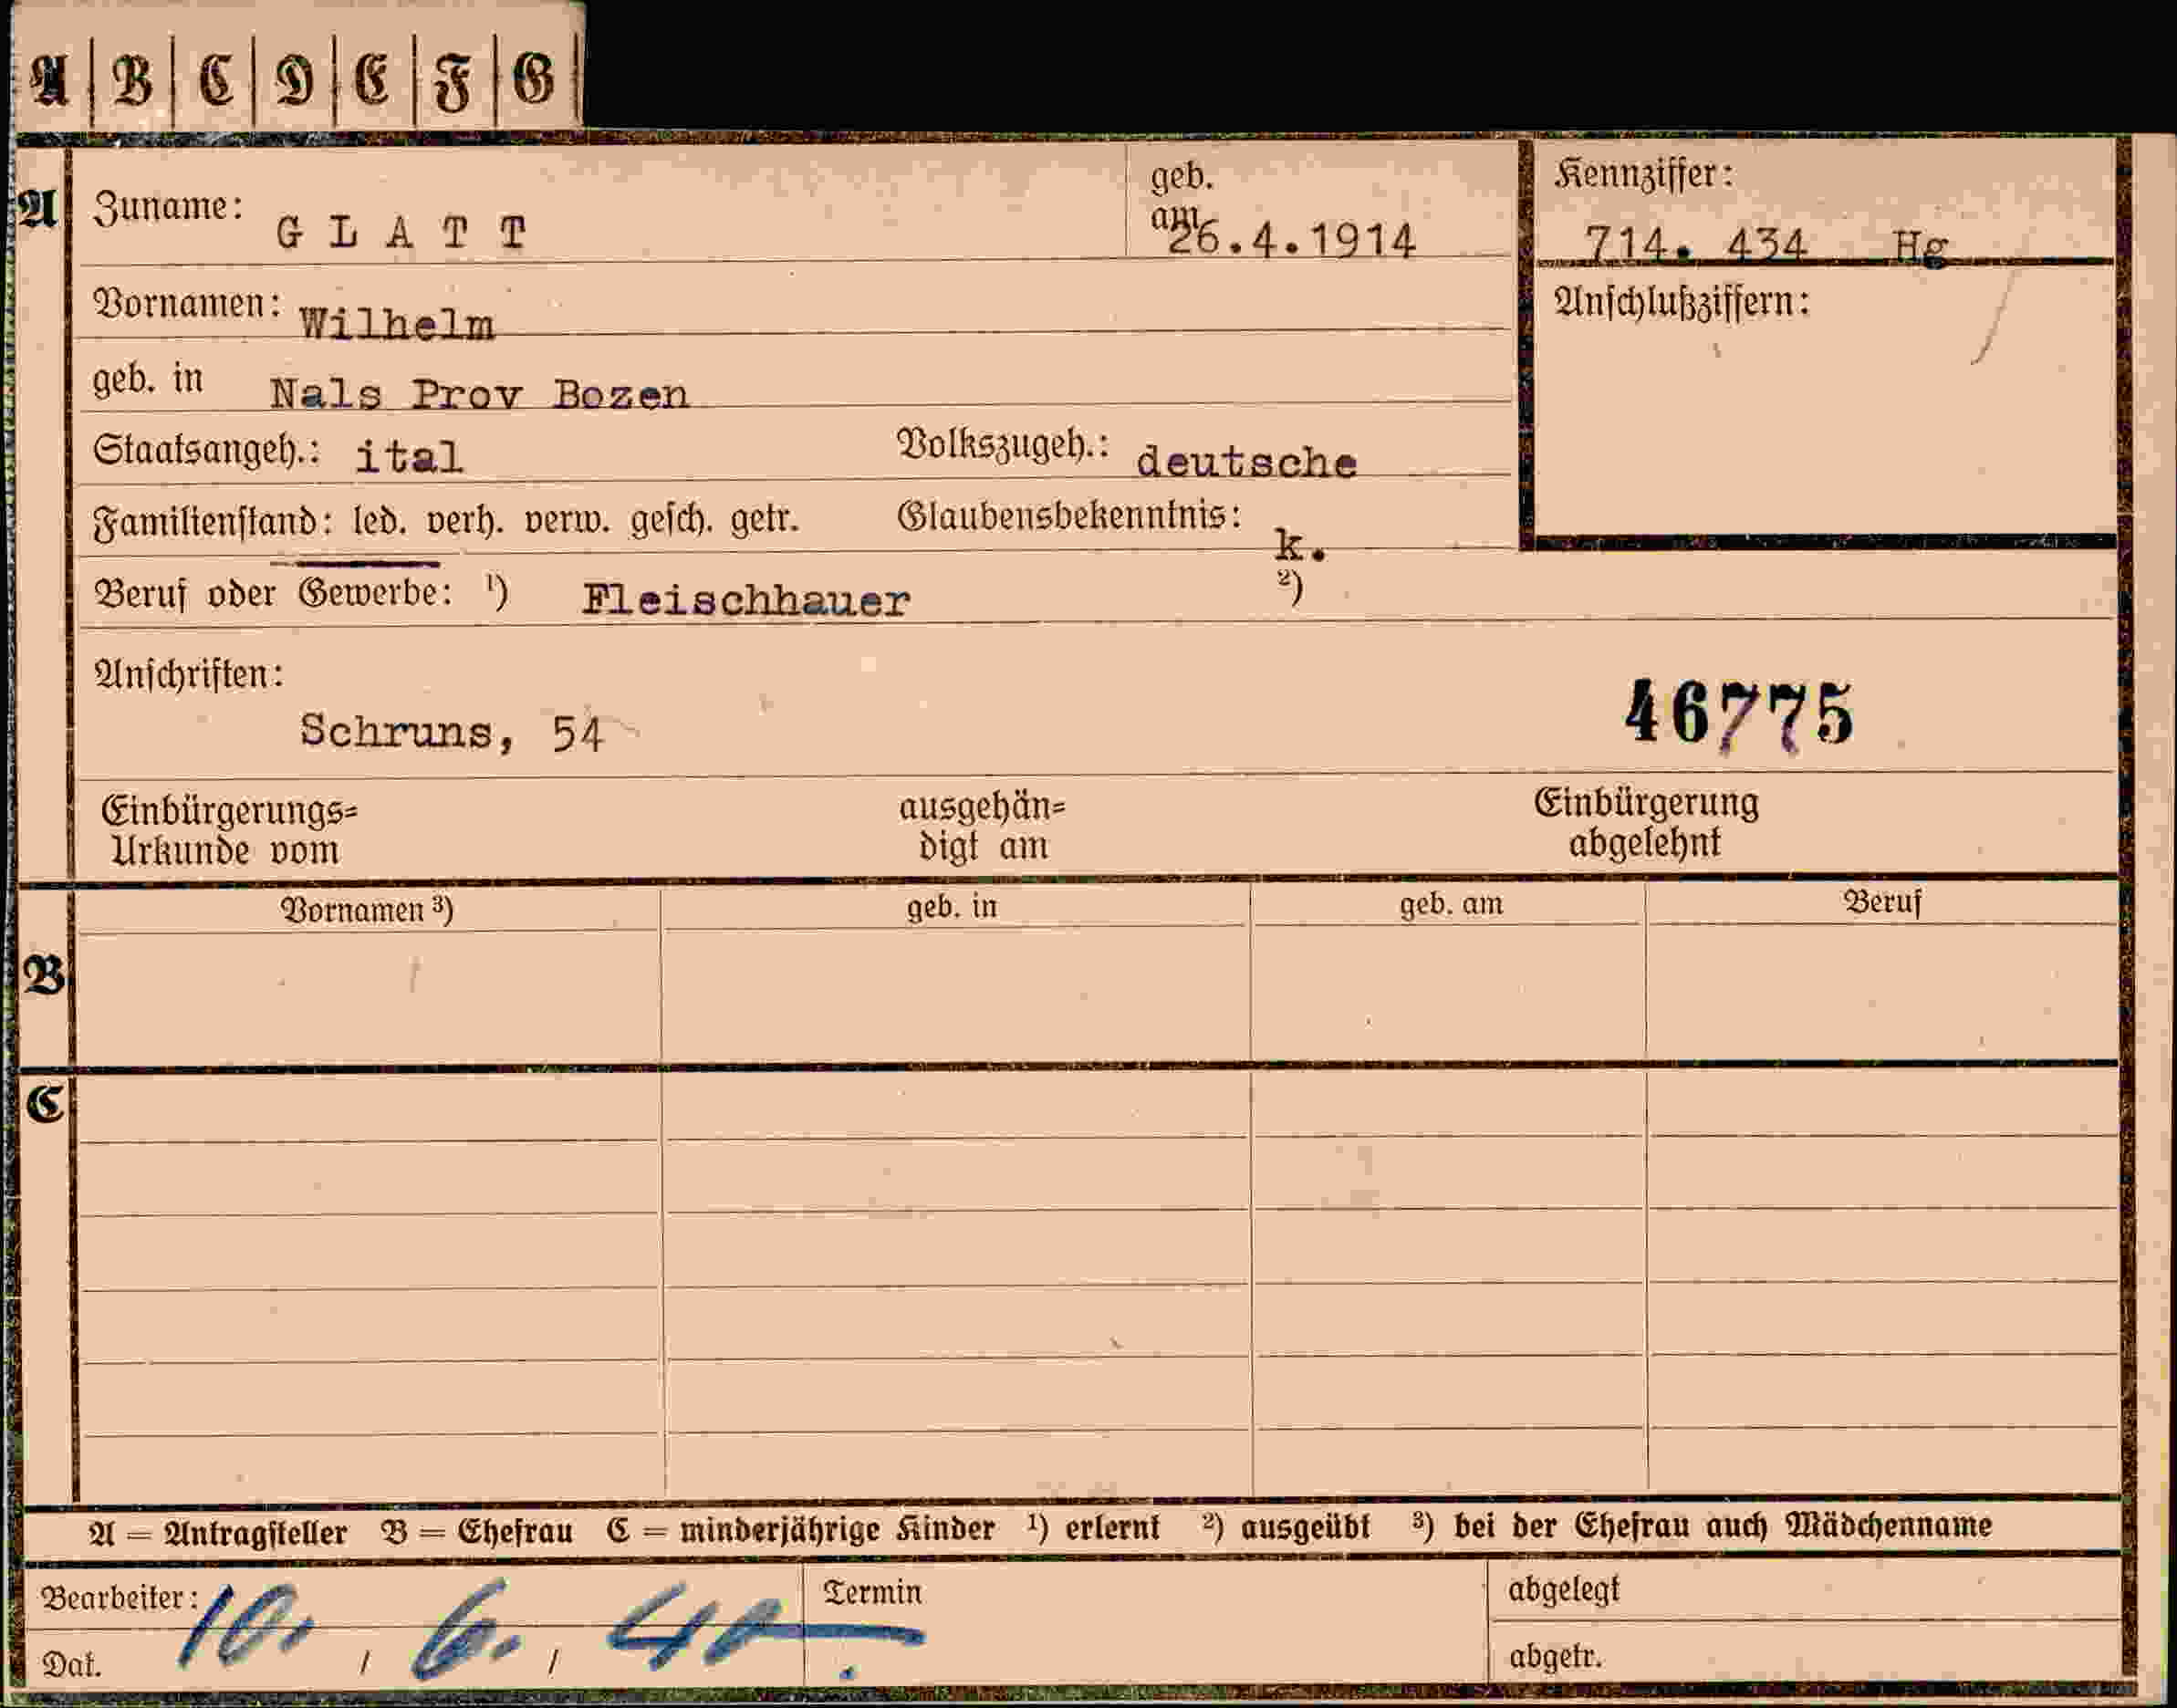 A | B | C | D | E | F | G
A
Zuname: G L A T T
geb. am 26.4.1914
Kennziffer:
714. 434 Hg
Vornamen: Wilhelm
Anschlußziffern:
geb. in Nals Prov Bozen
Staatsangeh.: ital Volkszugeh.: deutsche
Familienstand: led. verh. verw. gesch. getr. Glaubensbekenntnis: k.
Beruf oder Gewerbe: ¹) Fleischhauer ²)
Anschriften:
Schruns, 54
46775
Einbürgerungs=
Urkunde vom
ausgehän=
digt am
Einbürgerung
abgelehnt
B
Vornamen ³) geb. in geb. am Beruf
C
A = Antragsteller B = Ehefrau C = minderjährige Kinder ¹) erlernt ²) ausgeübt ³) bei der Ehefrau auch Mädchenname
Bearbeiter: Termin abgelegt
Dat. 10. / 6. / 40 abgetr.